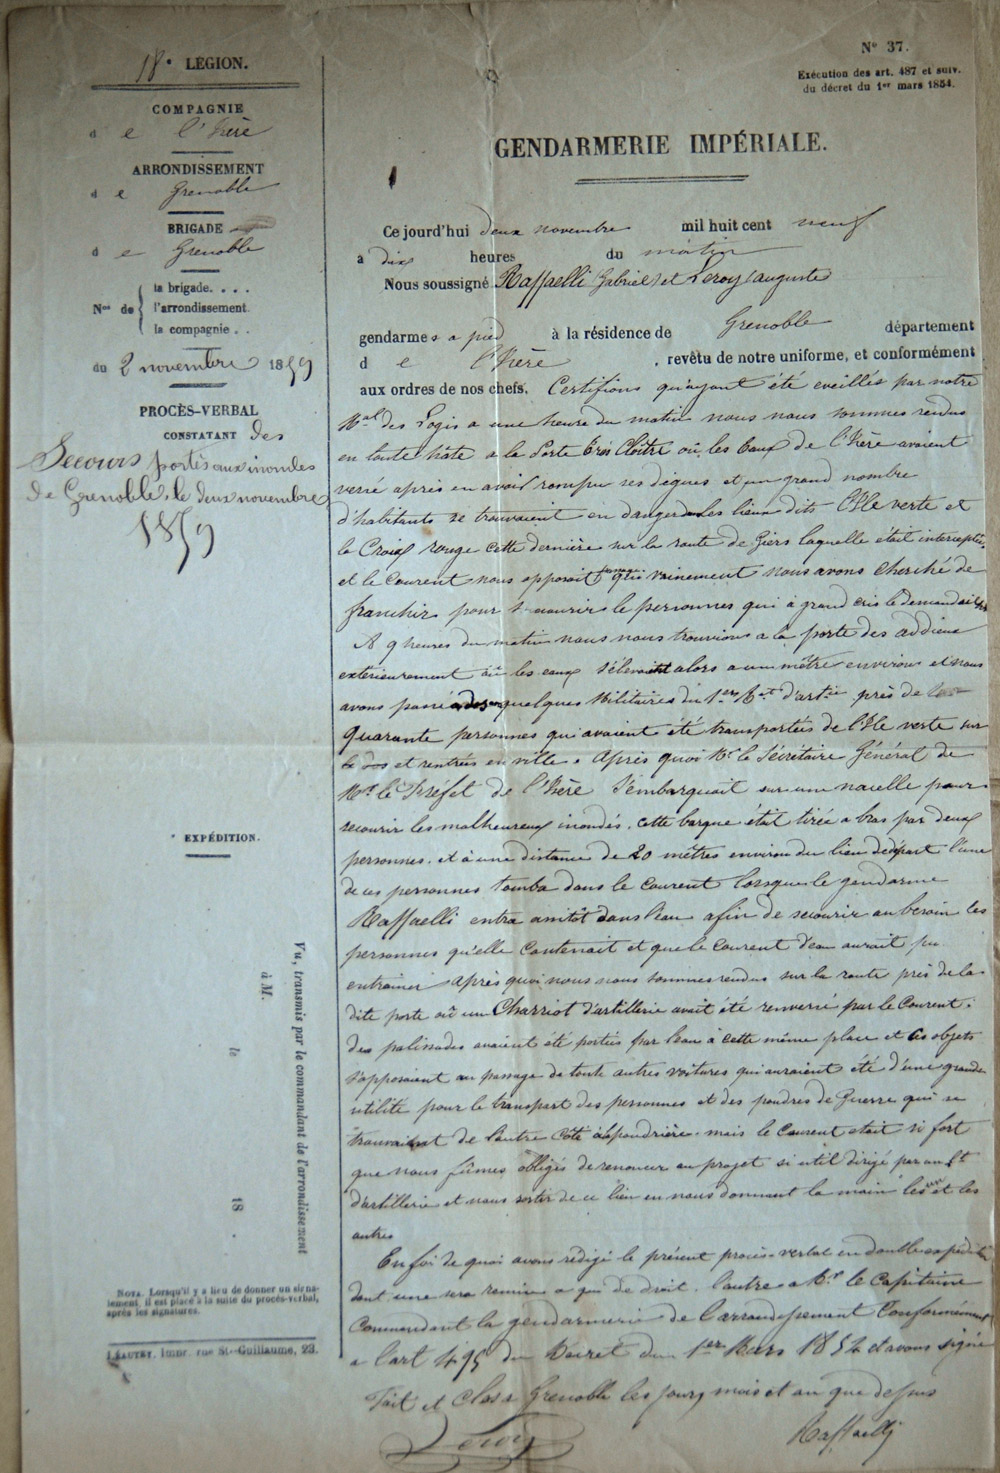 18e LÉGION.
COMPAGNIE
d e l'Isère
ARRONDISSEMENT
d e Grenoble
BRIGADE
d e Grenoble
Nos de
la brigade. . . .
l'arrondissement.
la compagnie . .
du 2 novembre 1859
PROCÈS-VERBAL
CONSTATANT des
Secours portés aux inondés
de Grenoble, le deux novembre
1859
EXPÉDITION.
Vu, transmis par le commandant de l'arrondissement
à M.
le 18 .
NOTA. Lorsqu'il y a lieu de donner un signa-
lement, il est placé à la suite du procès-verbal,
après les signatures.
Impr. rue St-Guillaume, 23.
N° 37.
Exécution des art. 487 et suiv.
du décret du 1er mars 1854.
GENDARMERIE IMPÉRIALE.
Ce jourd'hui deux novembre mil huit cent neuf
a dix heures du matin
Nous soussigné Raffaelli (Gabriel) et Leroy (auguste
gendarmes a pied à la résidence de Grenoble département
d e l'Isère , revêtu de notre uniforme, et conformément
aux ordres de nos chefs, Certifions qu'ayant été eveillés par notre
Mal des Logis a une heure du matin nous nous sommes rendus
en toute hâte a la Porte très Cloître où les Eaux de l'Isère avaient
versé après en avoir rompu ses digues et un grand nombre
d'habitants se trouvaient en danger les lieux dits l'Ile verte et
la Croix rouge cette dernière sur la route de Giers laquelle était interceptée
et le Courent nous opposait que vainement nous avons cherché de
franchir pour secourir le personnes qui à grand cris le demandaient
A 9 heures du matin nous nous trouvions a la porte des addieux
exterieurement où les eaux s'élevaient alors a un mètre environ et nous
avons passé quelques Militaires du 1er d'artie près de
Quarante personnes qui avaient été transportées de l'Ile verte sur
le dos et rentrées en ville. Après quoi Mr le Sécrétaire Général de
Mr le Préfet de l'Isère s'embarquait sur une nacelle pour
secourir les malheureux inondés. cette barque était tirée a bras par deux
personnes. et à une distance de 20 mètres environ du lieu de départ l'une
de ces personnes tomba dans le Courent lorsque le gendarme
Raffaelli entra aussitôt dans l'eau afin de secourir au besoin les
personnes qu'elle Contenait et que le Courent d'eau aurait pu
entrainer Après quoi nous nous sommes rendus sur la route près de la
dite porte où un Charriot d'artillerie avait été renversé par le Courent.
des palissades avaient été portées par l'eau à cette même place et ces objets
s'opposaient au passage de toute autres voitures qui auraient été d'une grande
utilité pour le transport des personnes et des poudres de Guerre qui se
trouvaient de l'autre côté à la poudrière. mais le Courent etait si fort
que nous fûmes obligés de renoncer au projet si util dirigé par un Lt
d'artillerie et nous sortir de ce lieu en nous donnant la main les uns et les
autres
En foi de quoi avons rédigé le présent procès-verbal en double expédition
dont une sera remise a qui de droit. l'autre a Mr le Capitaine
Commandant la gendarmerie de l'arrondissement Conformément
a l'art 495 du Décret du 1er Mars 1854 et avons signé
Fait et Clos a Grenoble les jour, mois et an que dessus
Leroy Raffaelli